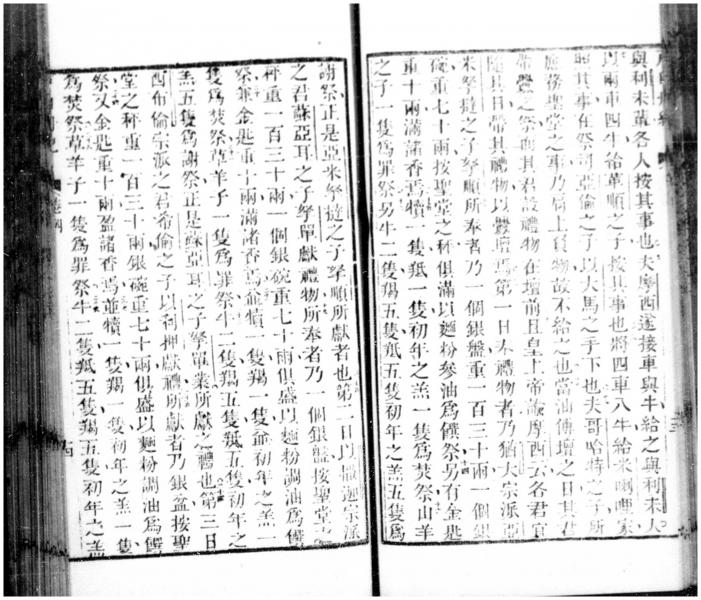 與利未輩各人按其事也夫摩西遂接車與牛給之與利未人
以兩車四牛給革順之子按其事也將四車八牛給米喇唎家
照其事在祭司亞倫之子以大馬之手下也夫哥哈特之子所
應務聖堂之事乃肩上負物故不給之也當油傅壇之日其君
帶釁之祭而其君設禮物在壇前且皇上帝諭摩西云各君宜
隨其日帶其禮物以釁壇焉第一日奉禮物者乃猶大宗派亞
米拏撻之子拏順所奉者乃一個銀盤重一百三十兩一個銀
碗重七十兩按聖堂之秤俱滿以麵粉參油為饌祭另有金匙
重十兩滿諸香焉犢一隻羝一隻初年之羔一隻為焚祭山羊
之子一隻為罪祭另牛二隻羯五隻羝五隻初年之羔五隻為
謝祭正是亞米拏撻之子拏順所獻者也第二日以撒迦宗派
之君蘇亞耳之子拏單獻禮物所奉者乃一個銀盤按聖堂之
秤重一百三十兩一個銀碗重七十兩俱盛以麵粉調油為饌
祭兼金匙重十兩滿諸香焉並犢一隻羯一隻並初年之羔一
隻為焚祭草羊子一隻為罪祭牛二隻羯五隻羝五隻初年之
羔五隻為謝祭正是蘇亞耳之子拏單業所獻之禮也第三日
西布倫宗派之君希倫之子以利押獻禮所獻者乃銀盆按聖
堂之秤重一百三十兩銀碗重七十兩俱盛以麵粉調油為饌
祭又金匙重十兩盈諸香焉並犢一隻羯一隻初年之羔一隻
為焚祭草羊子一隻為罪祭牛二隻羝五隻羯五隻初年之羔